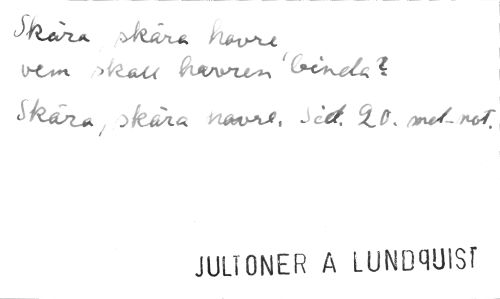 Skära, skära havre
vem skall havren binda?
Skära, skära havre. Sid. 20. mel-not.
JULTONER A LUNDQUIST